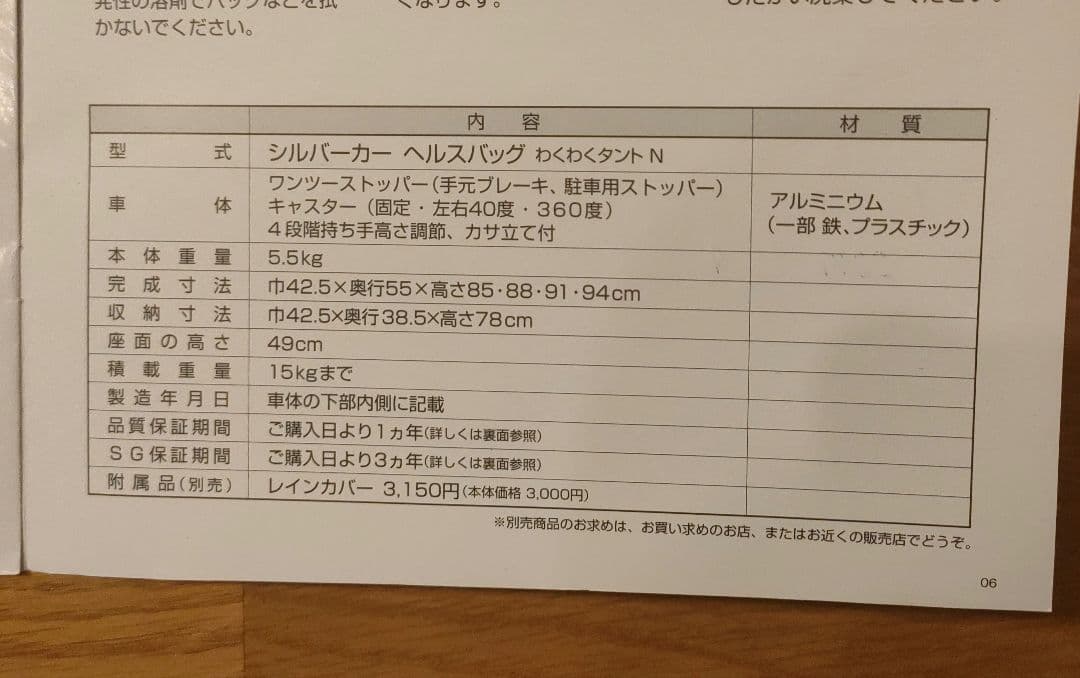 かないでください。
くなります。
内 容 材 質
型 式 シルバーカー ヘルスバッグ わくわくタント N
車 体 ワンツーストッパー(手元ブレーキ、駐車用ストッパー)
キャスター(固定・左右40度・360度)
4段階持ち手高さ調節、カサ立て付
アルミニウム
(一部 鉄、プラスチック)
本体重量 5.5kg
完成寸法 巾42.5×奥行55×高さ85・88・91・94cm
収納寸法 巾42.5×奥行38.5×高さ78cm
座面の高さ 49cm
積載重量 15kgまで
製造年月日 車体の下部内側に記載
品質保証期間 ご購入日より1ヵ年(詳しくは裏面参照)
SG保証期間 ご購入日より3ヵ年(詳しくは裏面参照)
附属品(別売) レインカバー 3,150円(本体価格 3,000円)
※別売商品のお求めは、お買い求めのお店、またはお近くの販売店でどうぞ。
06